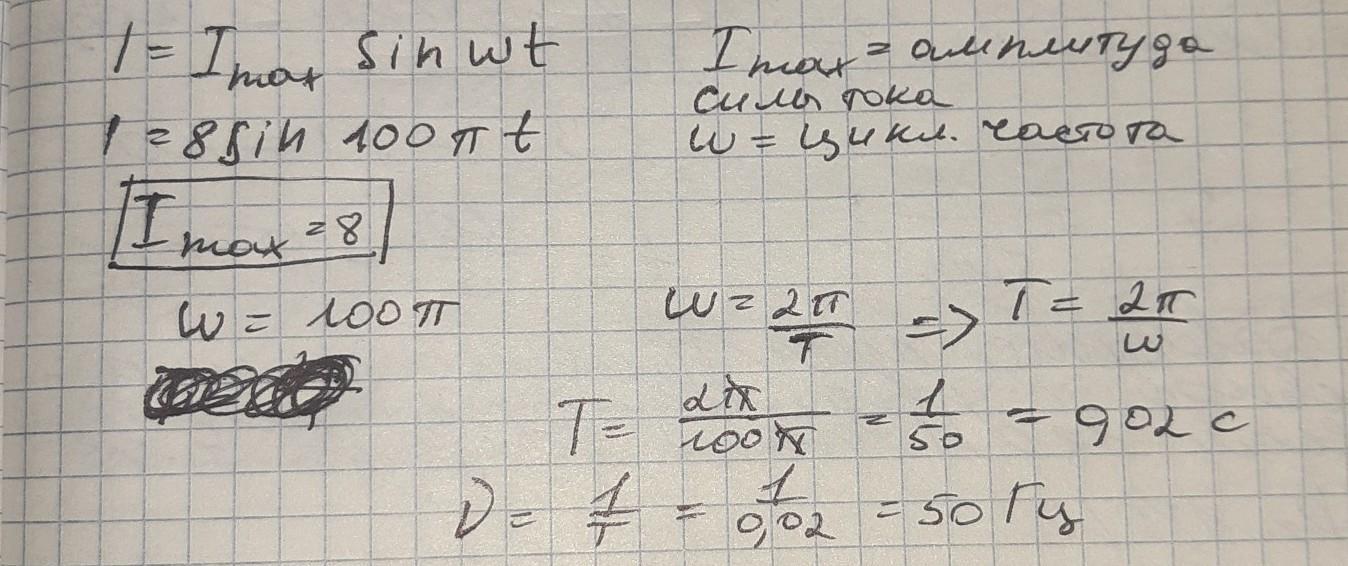 I = Imax sin ωt
Imax = амплитуда
силы тока
I = 8 sin 100 π t
ω = цикл. частота
Imax = 8
ω = 100 π
ω = 2π/T => T = 2π/ω
T = 2π/100π = 1/50 = 0,02 с
ν = 1/T = 1/0,02 = 50 Гц